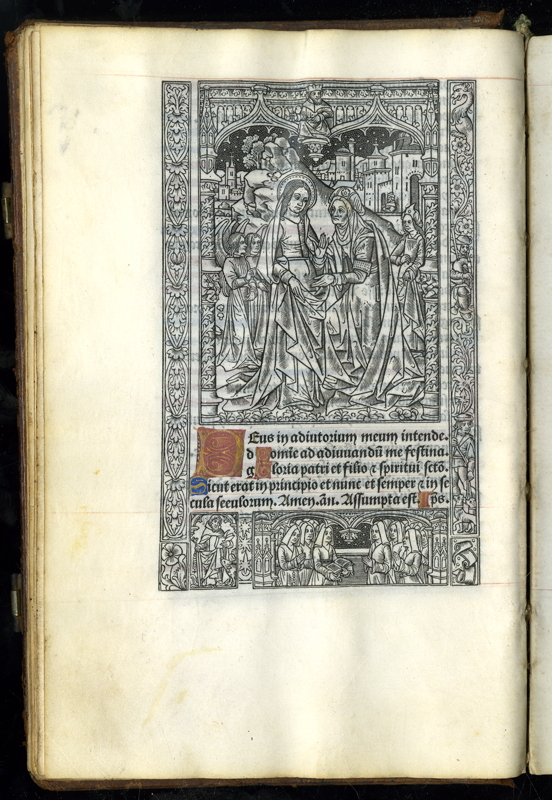 Deus in adiutorium meum intende.
domīe ad adiuuandū me festina.
gloria patri et filio ⁊ spiritui scto.
Sicut erat in principio et nunc et semper ⁊ in se
cula seculorum. Amen. añ. Assumpta est. p̄s.